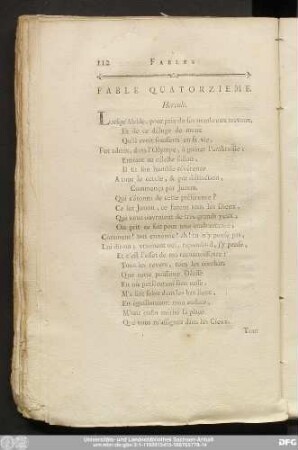 112 FABLES
FABLE QUATORZIEME
Hercule.
Lorsque Alcide, pour prix de ses nombreux travaux,
Et de ce déluge de maux
Qu'il avoit soufferts en sa vie,
Fut admis, dans l'Olympe, à goûter l'ambroisie;
Entrant au céleste sallon,
Il fit son humble révérence
A tout le cercle, & par distinction,
Commença par Junon.
Qui s'étonna de cette préférence?
Ce fut Junon; ce furent tous les Dieux,
Qui tous ouvroient de très grands yeux;
On prit ce fait pour une
Comment! son ennemie! Ah! n'y pensez pas,
Lui dirent; vraiment oui, répondit-il, j'y pense,
Et c'est l'effet de ma reconnoissance:
Tous les revers, tous les combats
Que cette puissante Déesse
En me persécutant sans cesse,
M'a fait
En
M'ont enfin mérité la place
Que vous m'assignez dans les Cieux.
Tout
Universitäts- und Landesbibliothek Sachsen-Anhalt